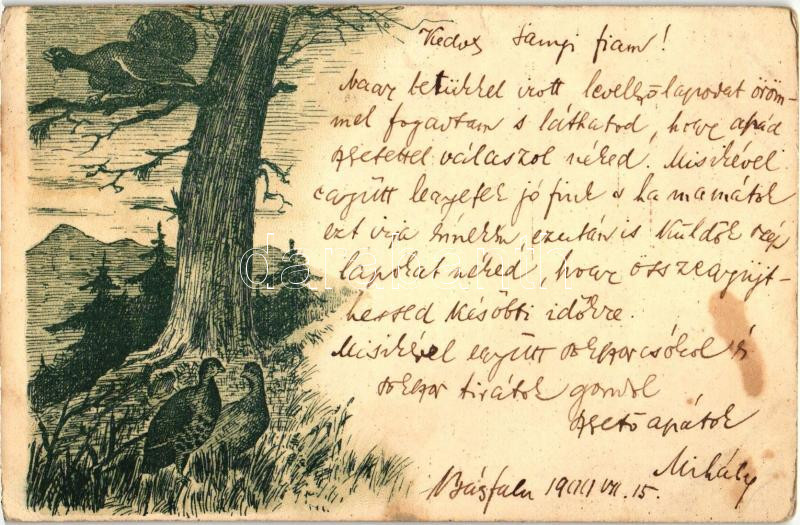 Kedves Sanyi fiam!
Nagy betükkel irott levelezőlapodat öröm-
mel fogadtam s láthatod, hogy apád
szeretettel válaszol néked. Miskével
együtt legyetek jó fiuk s ha mamátok
ezt irja énnekem ezután is küldök szép
lapokat néked, hogy összegyüjt-
hessed későbbi időkre.
Miskével együtt sokszor csókol és
sokszor tirátok gondol
szerető apátok
Mihály
Básfalu VII. 15.
darabanth